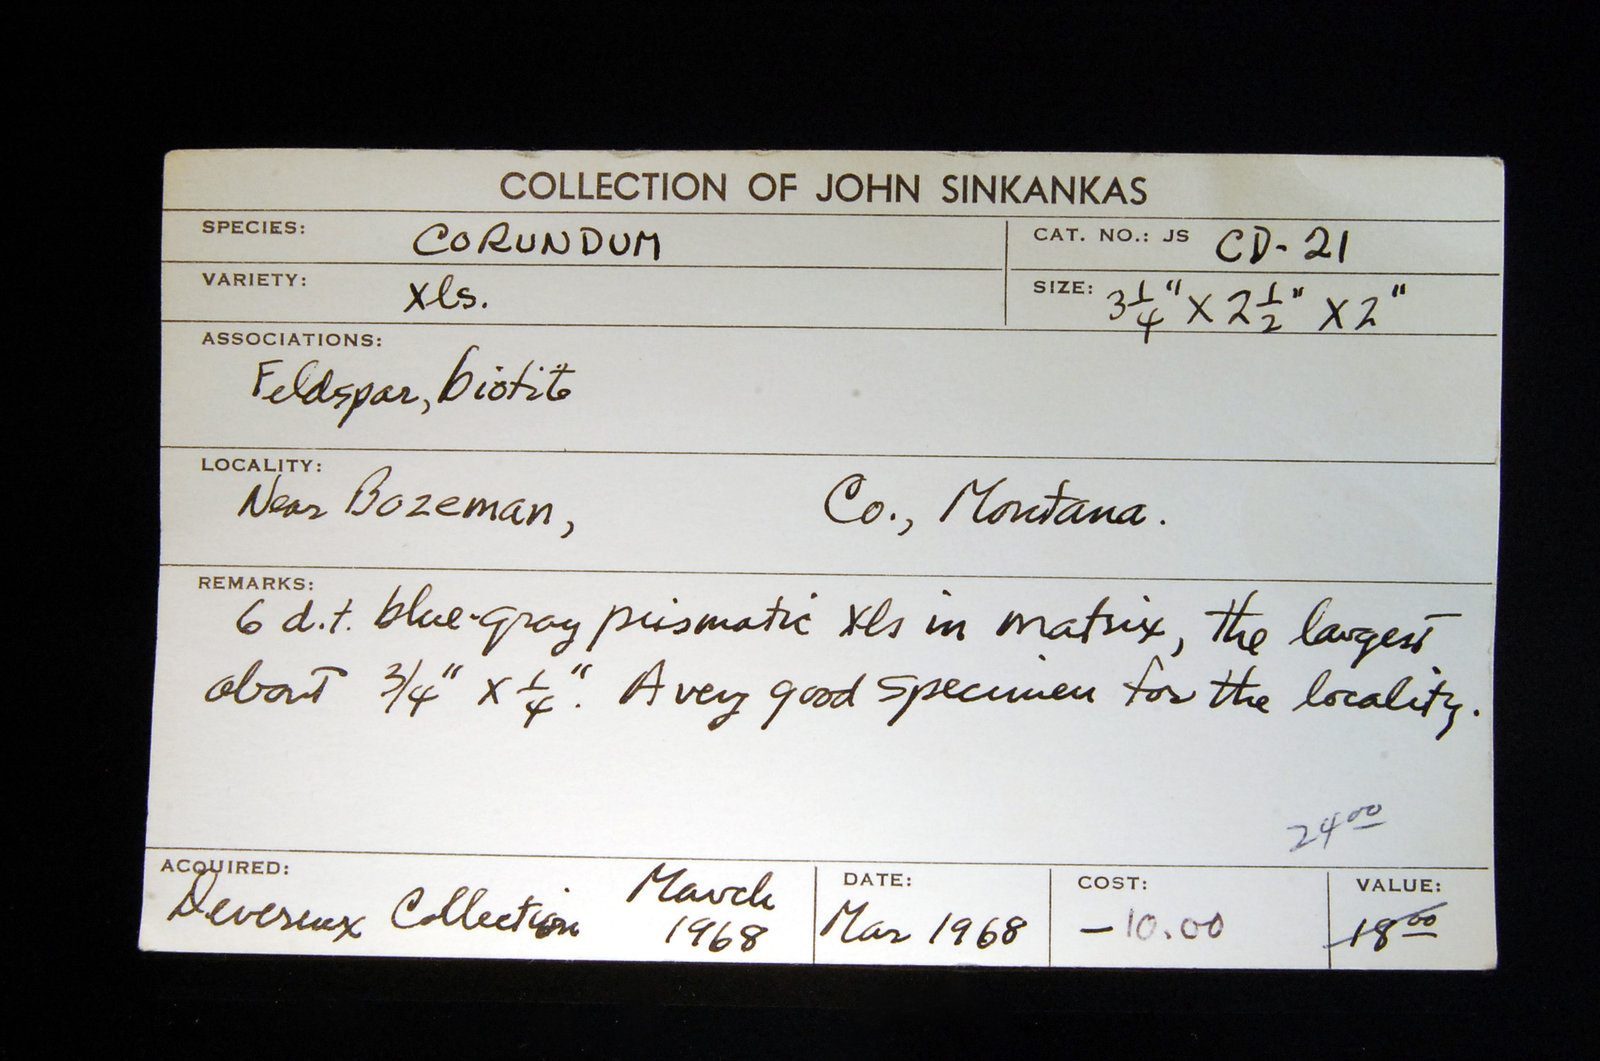 COLLECTION OF JOHN SINKANKAS
SPECIES: CORUNDUM
CAT. NO.: JS CD-21
VARIETY: xls.
SIZE: 3 1/4" X 2 1/2" X 2"
ASSOCIATIONS:
Feldspar, biotite
LOCALITY:
Near Bozeman, Co., Montana.
REMARKS:
6 d.t. blue-gray prismatic xls in matrix, the largest
about 3/4" x 1/4". A very good specimen for the locality.
24 00
ACQUIRED: Devereux Collection March 1968
DATE: Mar 1968
COST: – 10.00
VALUE: 18 00